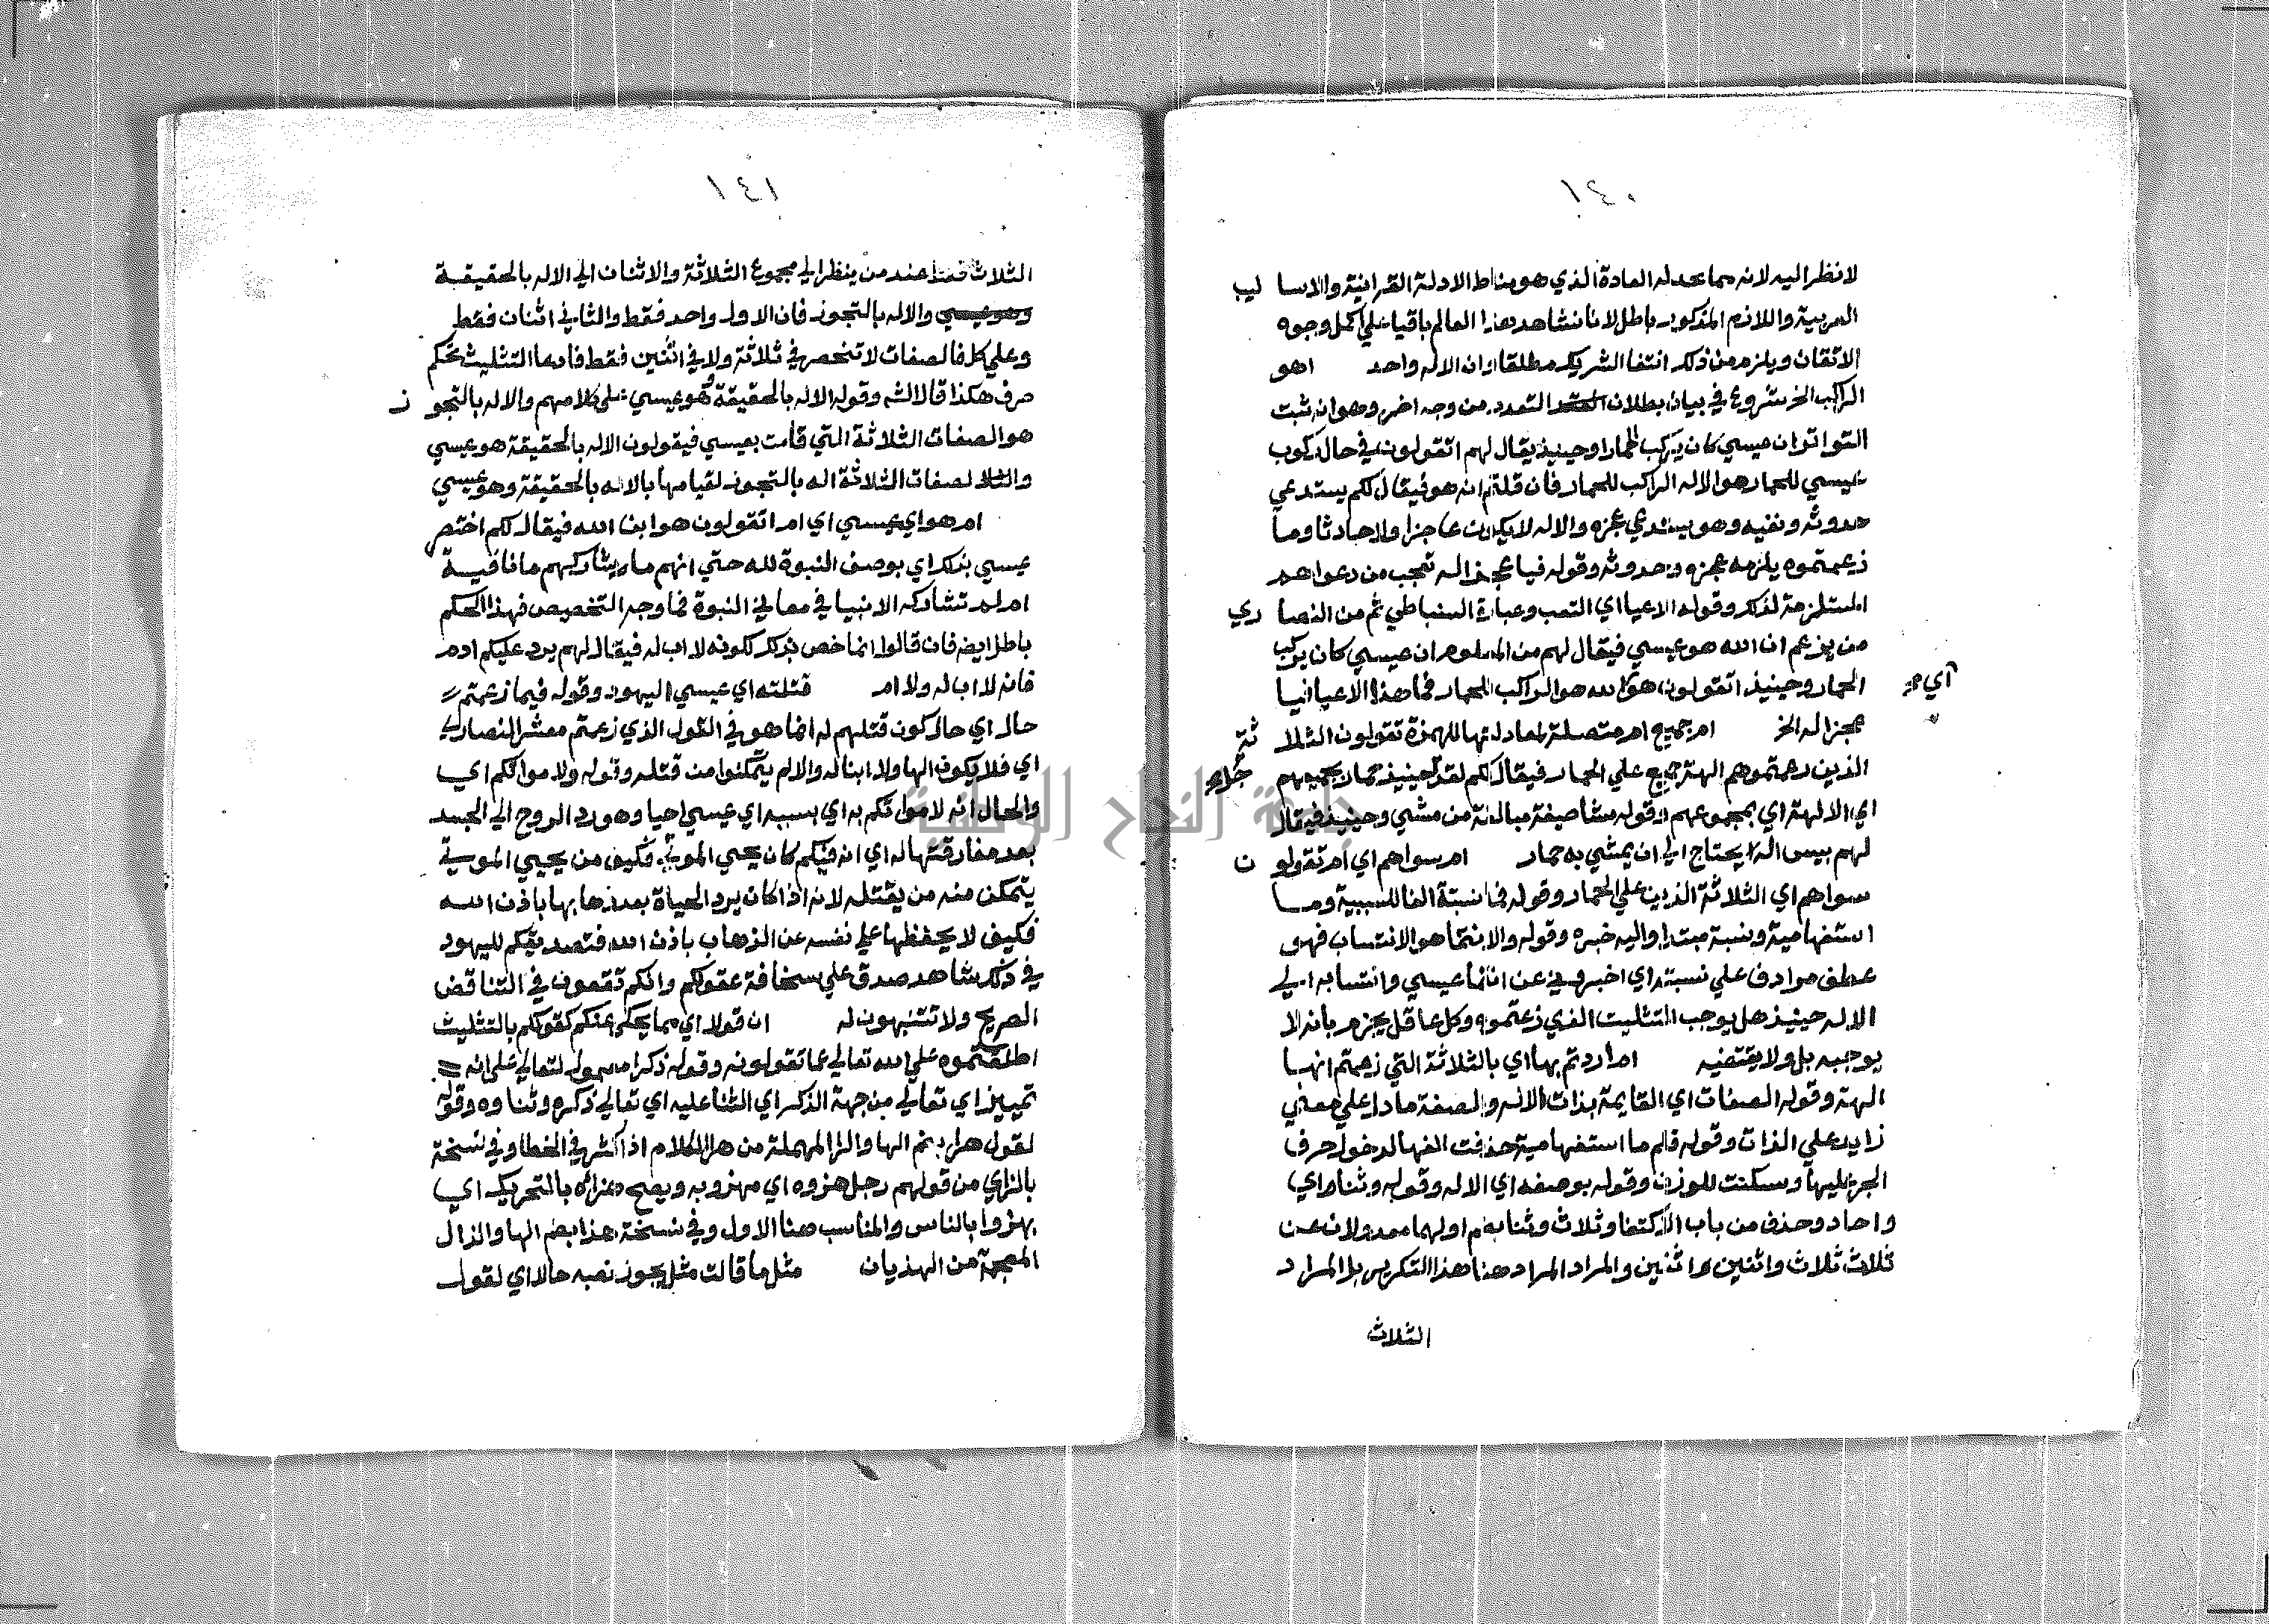 ١٤٠
لا نظر اليه لانه مما تحد له العادة الذي هو مناط الادلة القرانية والاسا ليب
العربية واللازم المذكور باطل لانا نشاهد هذا العالم باقيا علي اكمل وجوه
الاتقان ويلزم من ذلك انتفا الشريك مطلقا وان الاله واحد اهو
الراكب الخ شروع في بيان بطلان التعدد من وجه اخر وهو انه ثبت
التواتر ان عيسي كان يركب الحمار وحينيذ يقال لهم اتقولون في حال ركوب
عيسي للحمار هو الاله الراكب للحمار فان قلتم انه هو فيقال لكم يستدعي
حدوثه ونفيه وهو يستدعي عجزه والاله لا يكون عاجزا ولا حادثا وما
زعمتموه يلزمه عجزه وحدوثه وقوله فيا عجز اله تعجب من دعواهم
المستلزمة لذلك وقوله الاعيا اي التعب وعبارة السنباطي ثم من النصا ري
من يزعم ان الله هو عيسي فيقال لهم من المعلوم ان عيسي كان يركب
الحمار وحينيذ اتقولون هو الله هو الراكب للحمار فما هذا الاعيا فيا اي
عجز اله الخ ام جميع ام متصلة لمعادلتها للهمزة تقولون الثلا ثة
الذين زعمتموهم الهة جميع علي الحمار فيقال لكم لقد حينيذ حمار بجميعهم
اي الالهة اي بمجموعهم وقوله مشا صيغة مبالغة من مشي وحينيذ فيقال
لهم بيس اله يحتاج الي ان يمشي به حمار ام سواهم اي ام تقولو ن
سواهم اي الثلاثة الذين علي الحمار وقوله فما نسبة الفا للسببية وما
استفهامية ونسبة مبتدا واليه خبره وقوله والانتما هو الانتساب فهو
عطف مرادف علي نسبة اي اخبروني عن انتما عيسي وانتسابه الي
الاله حينيذ هل يوجب التثليت الذي زعمتموه وكل عاقل يجزم بانه لا
يوجبه بل ولا يقتضيه ام اردتم بها اي بالثلاثة التي زعمتم انها
الهة وقوله الصفات اي القايمة بذات الاله والصفة ما دل علي معني
زايد علي الذات وقوله فلم ما استفهامية حذفت الفها لدخول حرف
الجر عليها وسكنت للوزن وقوله بوصفه اي الاله وقوله وثنا واي
واحاد وحذف من باب الاكتفا وثلاث وثنا بضم اولهما معدولان عن
ثلاث ثلاث واثنين واثنين والمراد المراد هنا هذا التكرير بل المراد
الثلاث
١٤١
الثلاث فقط عند من ينظر الي مجموع الثلاثة والاثنان الي الاله بالحقيقة
والاله بالتجوز فان الاول واحد فقط والثاني اثنان فقط
وعلي كل فالصفات لا تنحصر في ثلاثة ولا في اثنين فقط فادعا التثليث تحكم
صرف هكذا قال الشه وقوله الاله بالحقيقة هو عيسي علي كلامهم والاله بالتجو ز
هو الصفات الثلاثة التي قامت بعيسي فيقولون الاله بالحقيقة هو عيسي
والثلا لصفات الثلاثة اله بالتجوز لقيامها بالاله بالحقيقة وهو عيسي
ام هو اي عيسي اي ام اتقولون هو ابن الله فيقال لكم اختص
عيسي بذلك اي بوصف النبوة لله حتي انهم ما يشاركهم ما نافية
ام لم تشاركه الانبيا في معاني النبوة فما وجه التخصيص فهذا الحكم
باطل ايضه فان قالوا انما خص بذلك لكونه لا اب له فيقال لهم يرد عليكم ادم
فانه لا اب له ولا ام قتلته اي عيسي اليهود وقوله فيما زعمتم
حال اي حال كون قتلهم له انما هو في القول الذي زعمتم معشر النصاري
اي فلا يكون الها ولا ابنا له والا لم يتمكنوا من قتله وقوله ولامواتكم اي
والحال انه لامواتكم به اي بسببه اي عيسي احيا وهو رد الروح الي الجسد
بعد مفارقتها له اي انه فيكم كان يحيي الموتي فكيف من يحيي الموتي
يتمكن منه من يقتله لانه اذا كان يرد الحياة بعد ذهابها باذن الله
فكيف لا يحفظها علي نفسه عن الذهاب باذن الله فتصديقكم لليهود
في ذلك شاهد صدق علي سخافة عقولكم وانكم تقعون في التناقض
الصريح ولا تتنبهون له ان قولا اي مما يحكي عنكم كقولكم بالتثليث
اطلقتموه علي الله تعالي عما تقولونه وقوله ذكرا معمول لتعالي علي انه
تمييز اي تعالي من جهة الذكر اي الثنا عليه اي تعالي ذكره وثناوه وقوله
لقول هراء بضم الها والرا المهملة من هرا الكلام اذا اكثر في الخطا وفي نسخة
بالزاي من قولهم رجل هزوه اي مهزو به ويصح هزأه بالتحريك اي
يهزوا بالناس والمناسب هنا الاول وفي نسخة هذا بضم الها والذال
المعجمة من الهذيان مثل ما قالت مثل يجوز نصبه حالا اي لقول